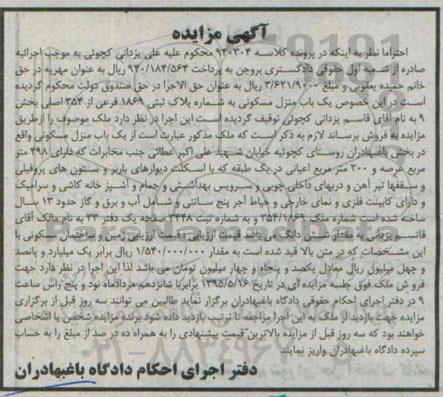 آگهی مزایده
احتراما نظر به اینکه در پرونده کلاسه ۹۲۰۳۰۴ محکوم علیه علی یزدانی کچوئی به موجب اجرائیه
صادره از شعبه اول حقوقی دادگستری بروجن به پرداخت ۹۴۰/۱۸۴/۵۶۴ ریال به عنوان مهریه در حق
خانم حمیده یعقوبی و مبلغ ۳/۶۲۱/۹۰۰۰ ریال به عنوان حق الاجرا در حق صندوق دولت محکوم گردیده
است در این خصوص یک باب منزل مسکونی به شماره پلاک ثبتی ۱۸۶۹ فرعی از ۳۵۴ اصلی بخش
۹ به نام آقای قاسم یزدانی کچوئی توقیف گردیده است این اجرا در نظر دارد ملک موصوف را ازطریق
مزایده به فروش برساند لازم به ذکر است که ملک مذکور عبارت است از یک باب منزل مسکونی واقع
در بخش باغبهادران روستای کچوئیه خیابان شهید علی اکبر عطائی جنب مخابرات که دارای ۴۹۸ متر
مربع عرصه و ۲۰۰ متر مربع اعیانی در یک طبقه که با اسکلت دیوارهای باربر و ستون های پروفیلی
و سقفها تیر آهن و دربهای داخلی چوبی و سرویس بهداشتی و حمام و آشپز خانه کاشی و سرامیک
و دارای کابینت فلزی و نمای خارجی و حیاط آجر پنج سانتی و شامل آب و برق و گاز حدود ۱۳ سال
ساخته شده است شماره ملک ۳۵۴/۱۸۶۹ و به شماره ثبت ۳۴۴۸ صفحه یک دفتر ۳۳ به نام مالک آقای
قاسم یزدانی به مقدار شش دانگ می باشد قیمت ارزیابی قیمت ارزیابی زمین و ساختمان مسکونی با
این مشخصات که در متن بالا قید شده است به مقدار ۱/۵۴۰/۰۰۰/۰۰۰ ریال برابر یک میلیارد و پانصد
و چهل میلیون ریال معادل یکصد و پنجاه و چهار میلیون تومان می باشد لذا این اجرا در نظر دارد جهت
فروش ملک فوق جلسه مزایده ای در تاریخ ۱۳۹۵/۵/۱۶ برابر با شانزدهم مردادماه نود و پنج راس ساعت
۹ در دفتر اجرای احکام حقوقی دادگاه باغبهادران برگزار نماید طالبین می توانند سه روز قبل از برگزاری
مزایده جهت بازدید از ملک به این اجرا مراجعه تا ترتیب بازدید داده شود برنده مزایده شخص یا اشخاصی
خواهند بود که سه روز قبل از مزایده بالاترین قیمت پیشنهادی را به همراه ده در صد از مبلغ را به حساب
سپرده دادگاه باغبهادران واریز نمایند
دفتر اجرای احکام دادگاه باغبهادران